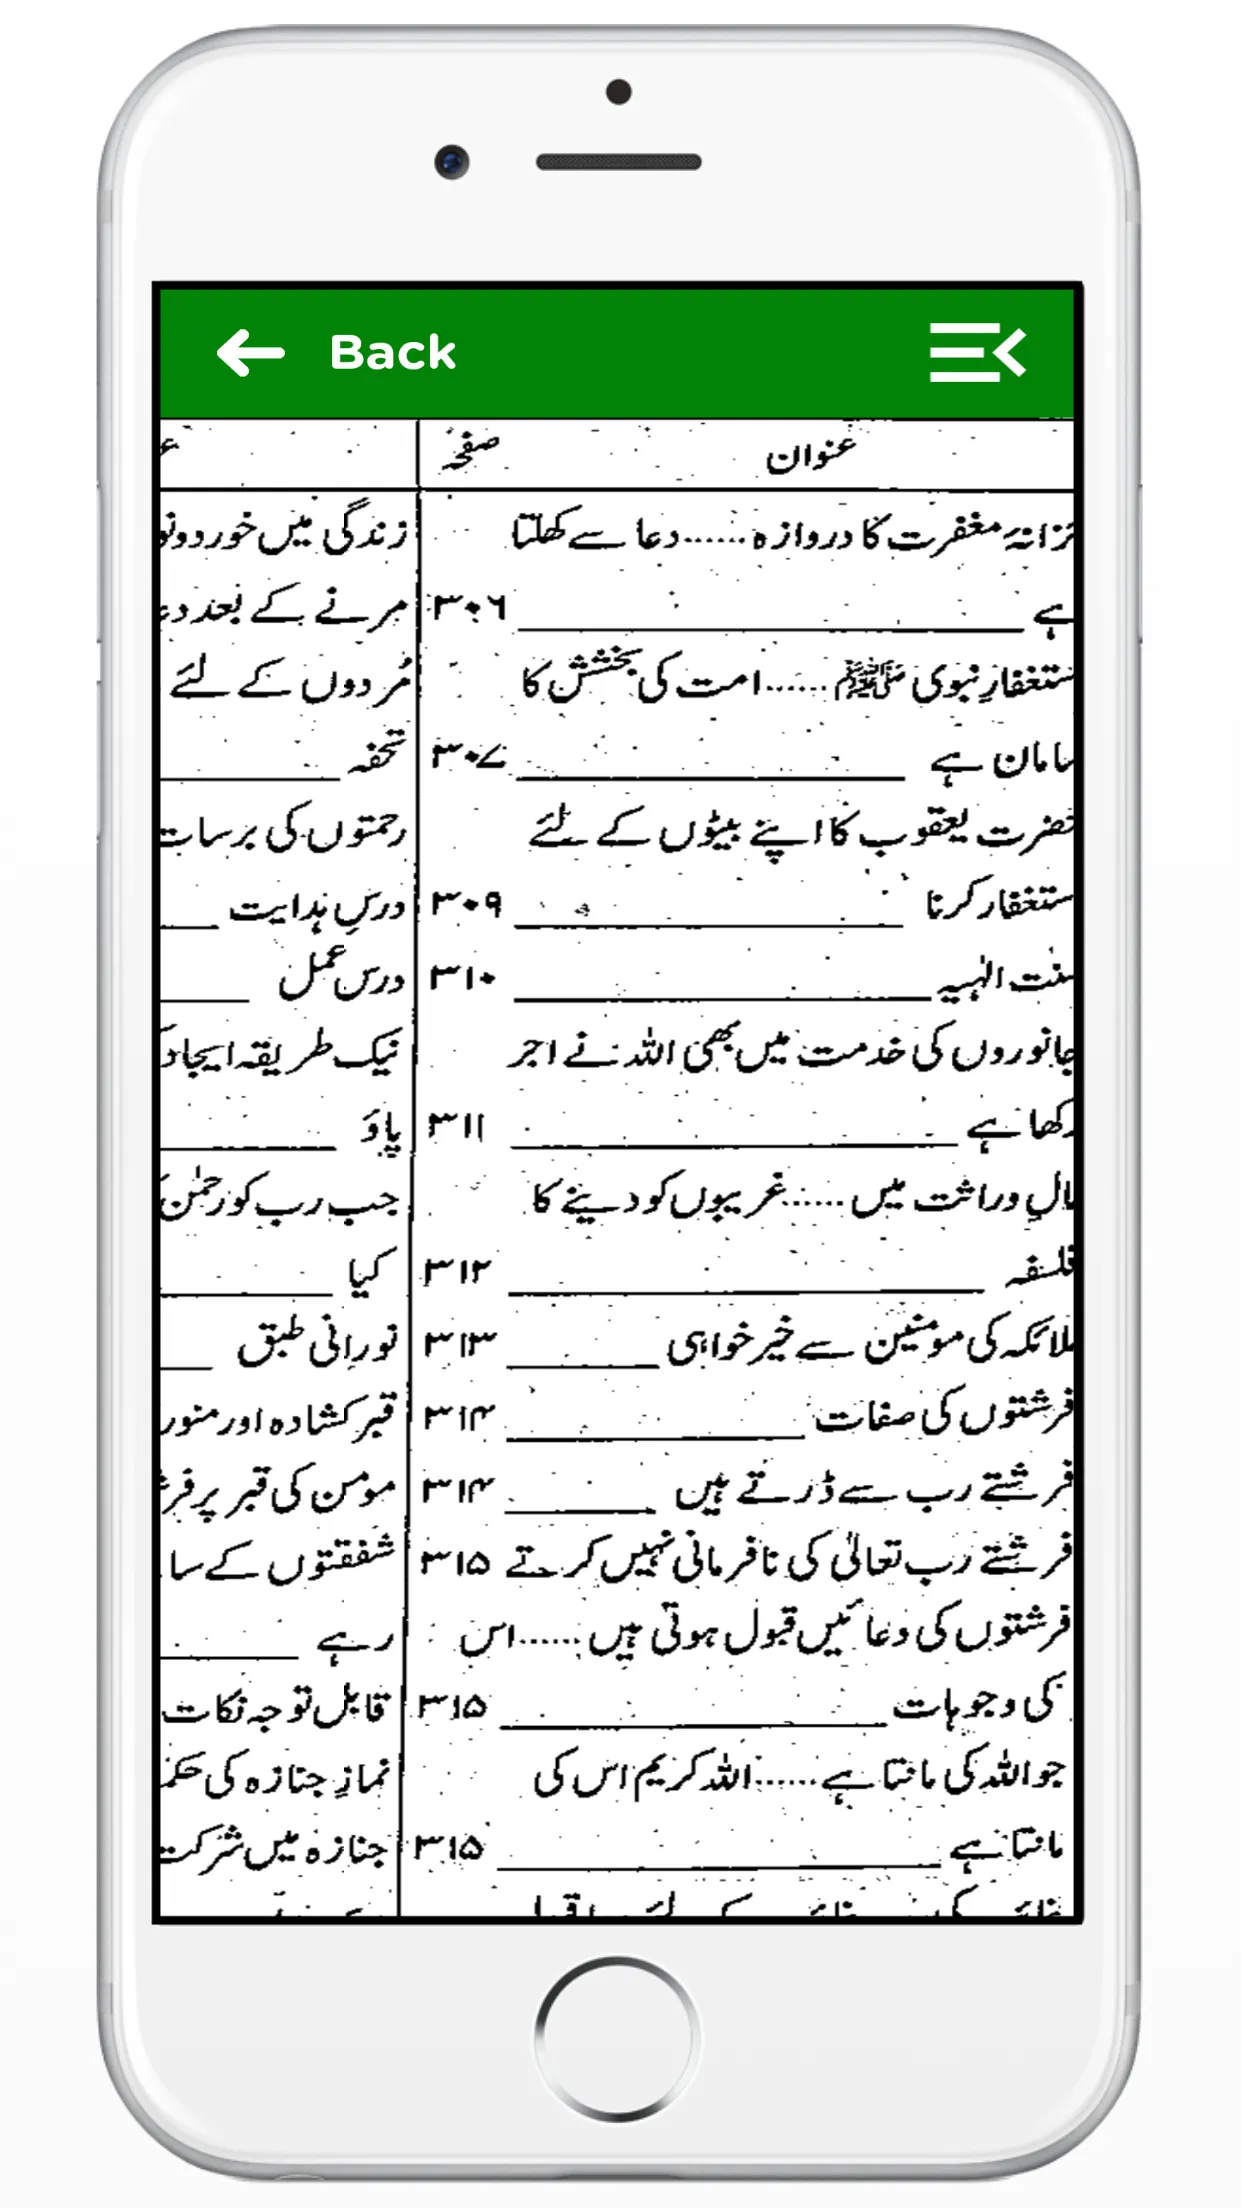 Back
عنوان
صفحہ
خزانۂ مغفرت کا دروازہ......دعا سے کھلتا
ہے ۳۰۶
استغفارِ نبوی ﷺ......امت کی بخشش کا
سامان ہے ۳۰۷
حضرت یعقوب کا اپنے بیٹوں کے لئے
استغفار کرنا ۳۰۹
سنت الٰہیہ ۳۱۰
جانوروں کی خدمت میں بھی اللہ نے اجر
رکھا ہے ۳۱۱
مالِ وراثت میں......غریبوں کو دینے کا
فلسفہ ۳۱۲
ملائکہ کی مومنین سے خیر خواہی ۳۱۳
فرشتوں کی صفات ۳۱۴
فرشتے رب سے ڈرتے ہیں ۳۱۴
فرشتے رب تعالیٰ کی نافرمانی نہیں کرتے ۳۱۵
فرشتوں کی دعائیں قبول ہوتی ہیں......اس
کی وجوہات ۳۱۵
جو اللہ کی مانتا ہے......اللہ کریم اس کی
مانتا ہے ۳۱۵
زندگی میں خورد و
مرنے کے بعد
مُردوں کے لئے
تحفہ
رحمتوں کی برسات
درسِ ہدایت
درس عمل
نیک طریقہ ایجاد
پاؤ
جب رب کو رحمٰن
کیا
نورانی طبق
قبر کشادہ اور منور
مومن کی قبر پر
شفقتوں کے
رہے
قابل توجہ نکات
نمازِ جنازہ کی
جنازہ میں شرکت